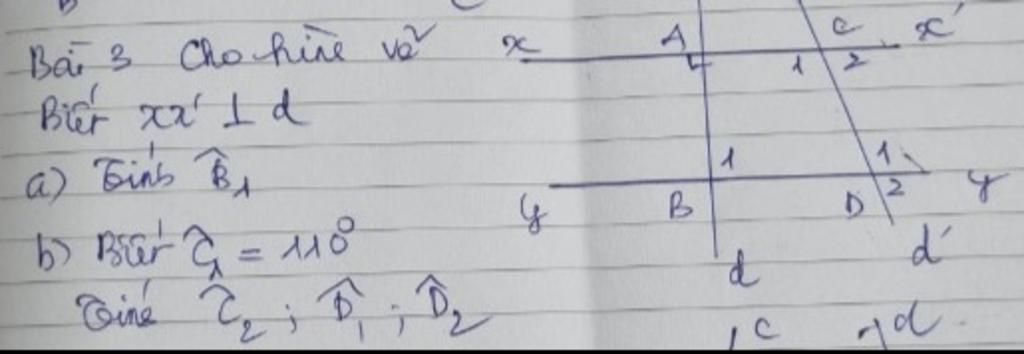 Bài 3 Cho hình vẽ
Biết xx' ⊥ d
a) Tính B̂₁
b) Biết Ĉ₁ = 110°
Tính Ĉ₂ ; D̂₁ ; D̂₂
x A C x'
1 2
1 1
y B D 2 y
d d'
c d